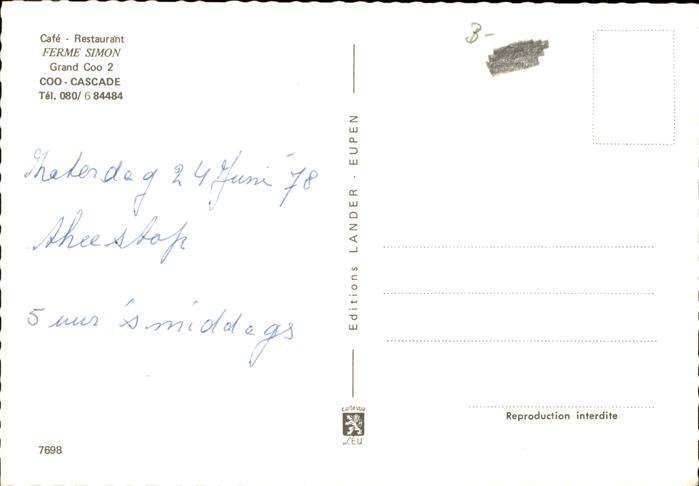 Café - Restaurant
FERME SIMON
Grand Coo 2
COO - CASCADE
Tél. 080/ 6 84484
Zaterdag 24 Juni '78
theestop
5 uur 's middags
7698
Editions LANDER - EUPEN
3-
Reproduction interdite